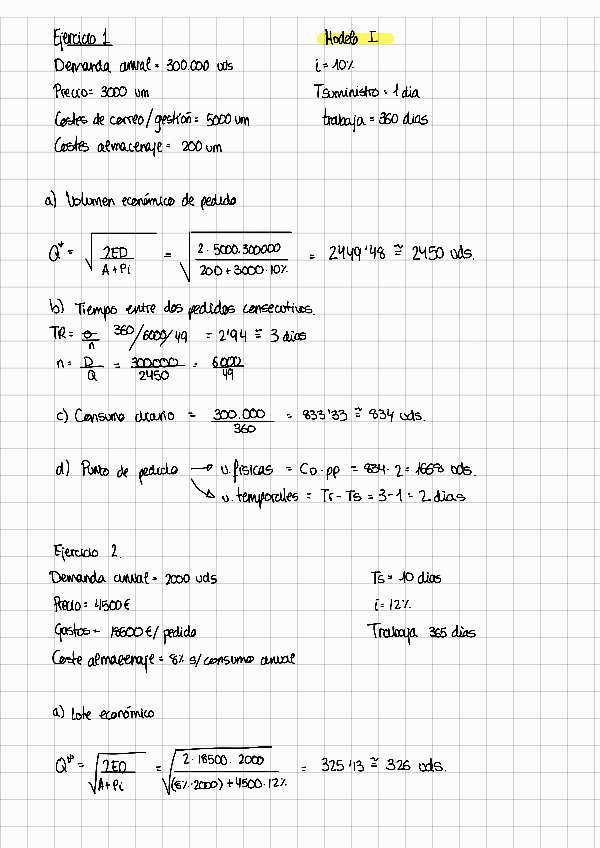 Ejercicio 1
Modelo I
Demanda anual = 300.000 uds
i = 10%
Precio = 3000 um
Tsuministro = 1 dia
Costes de correo / gestión = 5000 um
trabaja = 360 dias
Costes almacenaje = 200 um
a) Volumen económico de pedido
Q* = √(2ED / A+Pi) = √(2·5000·300000 / 200 + 3000·10%) = 2449'48 ≅ 2450 uds.
b) Tiempo entre dos pedidos consecutivos.
TR = θ/n 360/6000/49 = 2'94 ≅ 3 dias
n = D/Q = 300000/2450 = 6000/49
c) Consumo diario = 300.000/360 = 833'33 ≅ 834 uds.
d) Punto de pedido → u.físicas = CD·pp = 834·2 = 1668 uds.
↘ u.temporales = Tr - Ts = 3-1 = 2 dias
Ejercicio 2.
Demanda anual = 2000 uds
Ts = 10 dias
Precio = 4500€
i = 12%
Gastos = 18500€/pedido
Trabaja 365 dias
Coste almacenaje = 8% s/consumo anual
a) Lote económico
Q* = √(2ED / A+Pi) = √(2·18500·2000 / (8%·2000) + 4500·12%) = 325'13 ≅ 326 uds.